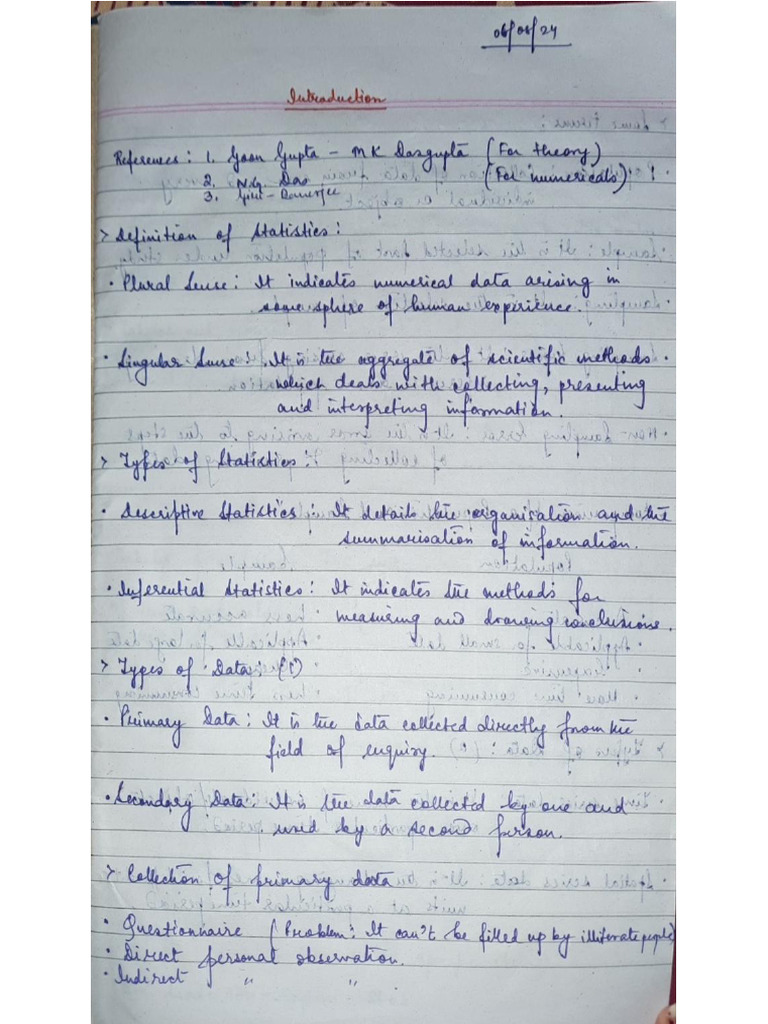 06/08/24
Introduction
References: 1. Goon Gupta - M K Dasgupta (For theory)
2. N.G. Das (For numericals)
3. Banerjee
> Definition of Statistics:
• Plural Sense: It indicates numerical data arising in
some sphere of human experience.
• Singular Sense: It is the aggregate of scientific methods
which deals with collecting, presenting
and interpreting information.
> Types of Statistics:
• Descriptive Statistics: It details the organisation and the
summarisation of information.
• Inferential Statistics: It indicates the methods for
measuring and drawing conclusions.
> Types of Data: (1)
• Primary Data: It is the data collected directly from the
field of enquiry.
• Secondary Data: It is the data collected by one and
used by a second person.
> Collection of primary data
• Questionnaire (Problem: It can't be filled up by illiterate people)
• Direct personal observation.
• Indirect " "